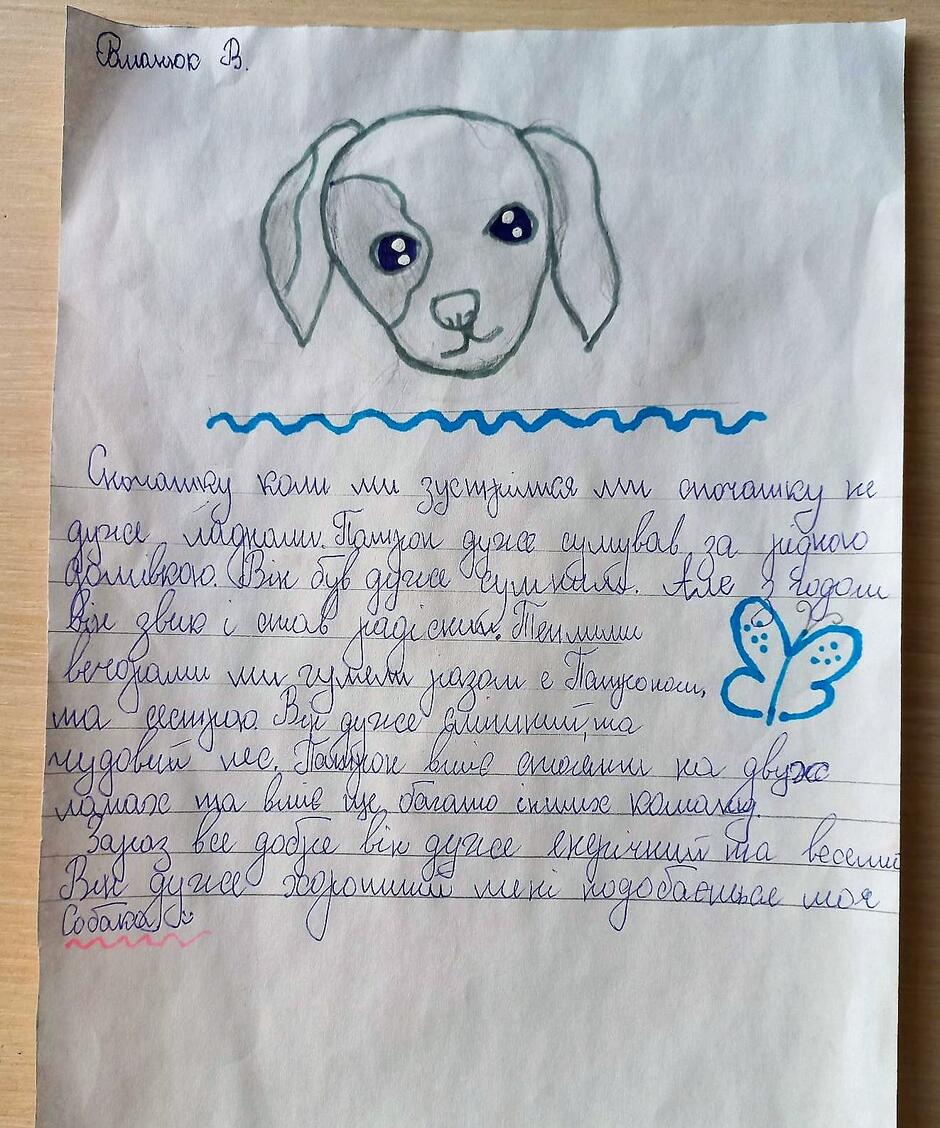 В.
Спочатку коли ми зустрілися ми спочатку не
дуже ладнали. Патрон дуже сумував за рідною
домівкою. Він був дуже сумним. Але з годом
він звик і став радісний. Теплими
вечорами ми гуляли разом с Патроном,
та сестрою. Він дуже смішний, та
чудовий пес. Патрон вміє стояти на двух
лапах та вміє ще багато інших команд.
Зараз все добре він дуже енергічний та веселий
Він дуже хороший мені подобається моя
Собака